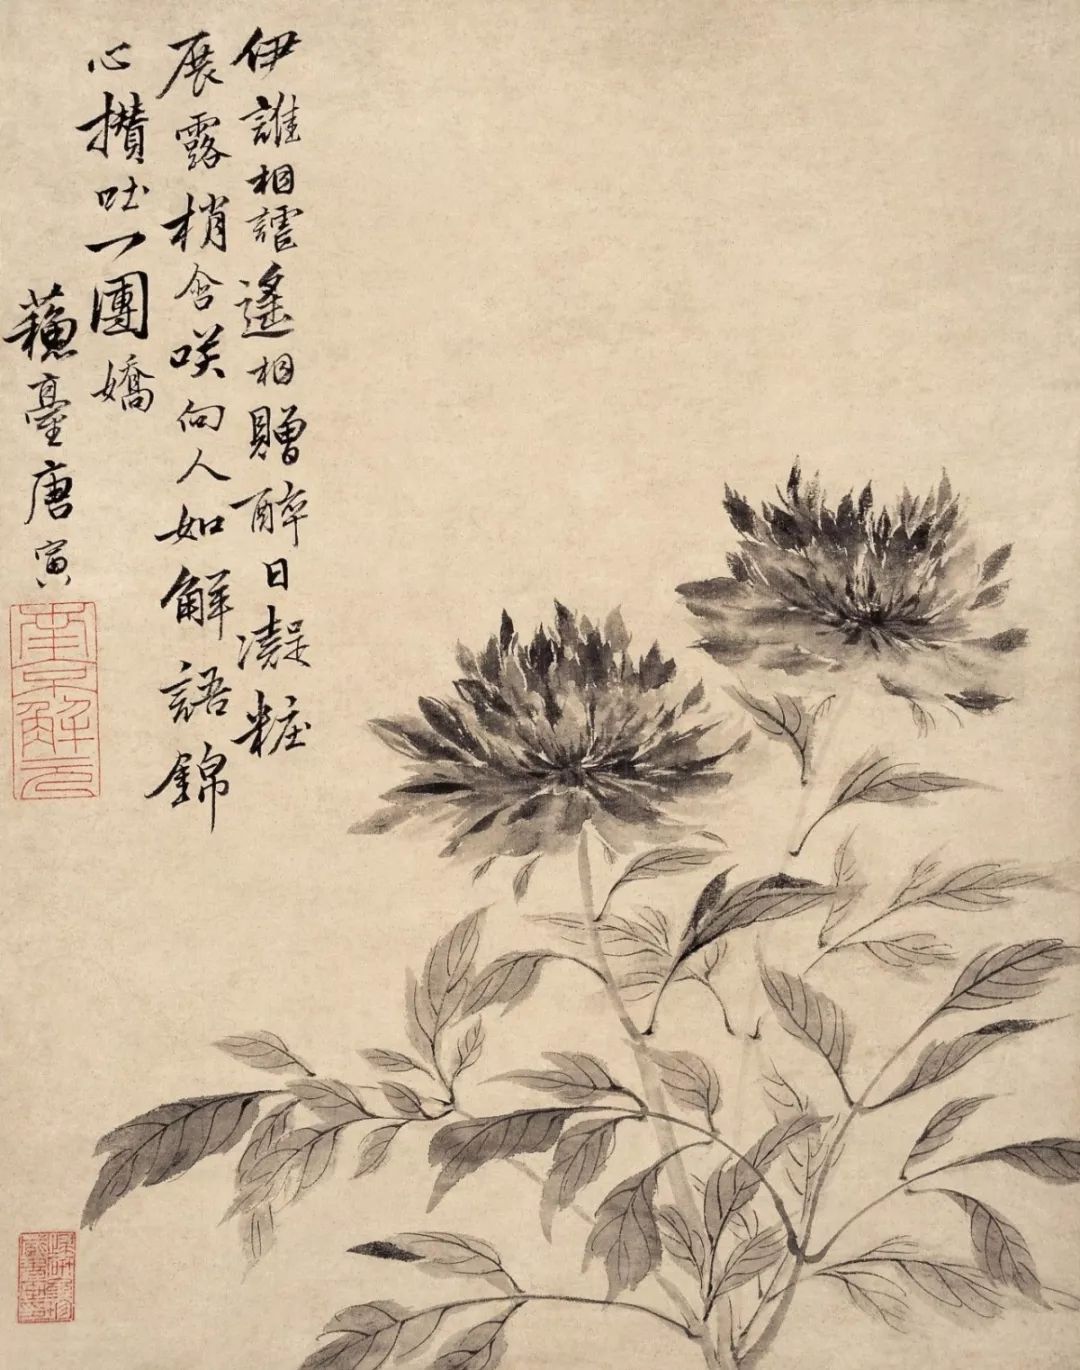 伊誰相謔遙相贈醉日凝粧
展露梢含咲向人如解語錦
心攢吐一團嬌
蘓臺唐寅
南京解元